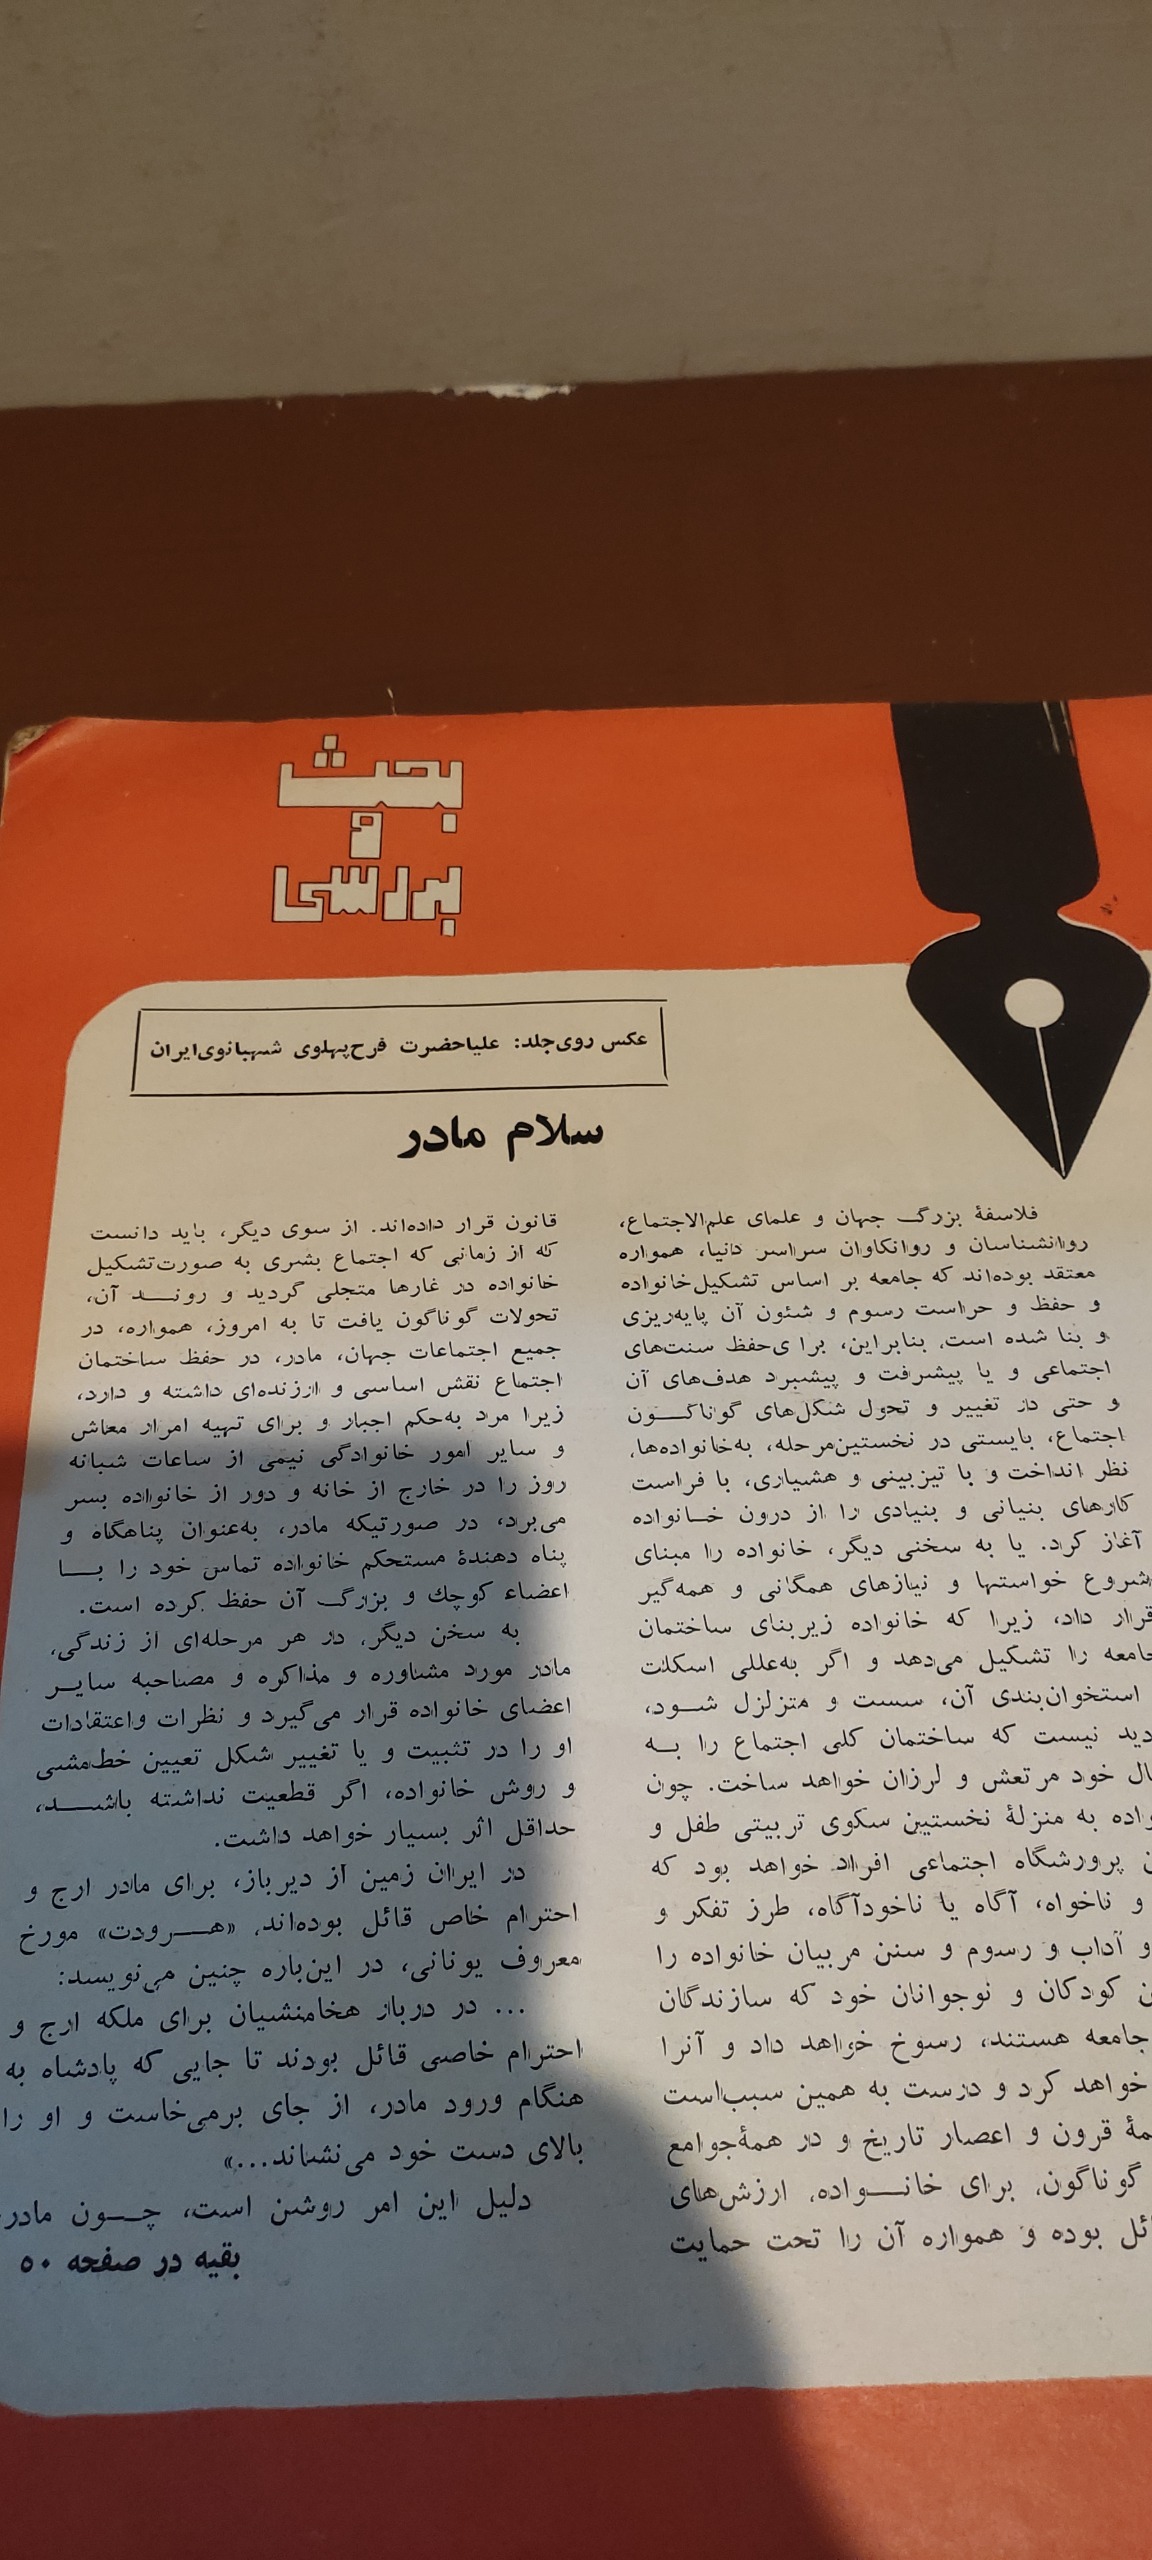 بحث
و
بررسی
عکس روی‌جلد: علیاحضرت فرح‌پهلوی شهبانوی‌ایران
سلام مادر
فلاسفهٔ بزرگ جهان و علمای علم‌الاجتماع،
روانشناسان و روانکاوان سراسر دنیا، همواره
معتقد بوده‌اند که جامعه بر اساس تشکیل‌خانواده
و حفظ و حراست رسوم و شئون آن پایه‌ریزی
و بنا شده است. بنابراین، برا ی‌حفظ سنت‌های
اجتماعی و یا پیشرفت و پیشبرد هدف‌های آن
و حتی در تغییر و تحول شکل‌های گوناگون
اجتماع، بایستی در نخستین‌مرحله، به‌خانواده‌ها،
نظر انداخت و با تیزبینی و هشیاری، با فراست
کارهای بنیانی و بنیادی را از درون خانواده
آغاز کرد. یا به سخنی دیگر، خانواده را مبنای
شروع خواستها و نیازهای همگانی و همه‌گیر
قرار داد، زیرا که خانواده زیربنای ساختمان
جامعه را تشکیل می‌دهد و اگر به‌عللی اسکلت
استخوان‌بندی آن، سست و متزلزل شود،
نیست که ساختمان کلی اجتماع را به
خود مرتعش و لرزان خواهد ساخت. چون
به منزلهٔ نخستین سکوی تربیتی طفل و
پرورشگاه اجتماعی افراد خواهد بود که
و ناخواه، آگاه یا ناخودآگاه، طرز تفکر و
و آداب و رسوم و سنن مربیان خانواده را
کودکان و نوجوانان خود که سازندگان
جامعه هستند، رسوخ خواهد داد و آنرا
خواهد کرد و درست به همین سبب‌است
قرون و اعصار تاریخ و در همهٔ‌جوامع
گوناگون، برای خانواده، ارزش‌های
بوده و همواره آن را تحت حمایت
قانون قرار داده‌اند. از سوی دیگر، باید دانست
که از زمانی که اجتماع بشری به صورت‌تشکیل
خانواده در غارها متجلی گردید و روند آن،
تحولات گوناگون یافت تا به امروز، همواره، در
جمیع اجتماعات جهان، مادر، در حفظ ساختمان
اجتماع نقش اساسی و ارزنده‌ای داشته و دارد،
زیرا مرد به‌حکم اجبار و برای تهیه امرار معاش
و سایر امور خانوادگی نیمی از ساعات شبانه
روز را در خارج از خانه و دور از خانواده بسر
می‌برد، در صورتیکه مادر، به‌عنوان پناهگاه و
پناه دهندهٔ مستحکم خانواده تماس خود را با
اعضاء کوچك و بزرگ آن حفظ کرده است.
به سخن دیگر، در هر مرحله‌ای از زندگی،
مادر مورد مشاوره و مذاکره و مصاحبه سایر
اعضای خانواده قرار می‌گیرد و نظرات واعتقادات
او را در تثبیت و یا تغییر شکل تعیین خط‌مشی
و روش خانواده، اگر قطعیت نداشته باشد،
حداقل اثر بسیار خواهد داشت.
در ایران زمین از دیرباز، برای مادر ارج و
احترام خاص قائل بوده‌اند، «هرودت» مورخ
معروف یونانی، در این‌باره چنین می‌نویسد:
... در دربار هخامنشیان برای ملکه ارج و
احترام خاصی قائل بودند تا جایی که پادشاه به
هنگام ورود مادر، از جای برمی‌خاست و او را
بالای دست خود می‌نشاند...»
دلیل این امر روشن است، چون مادر
بقیه در صفحه ۵۰